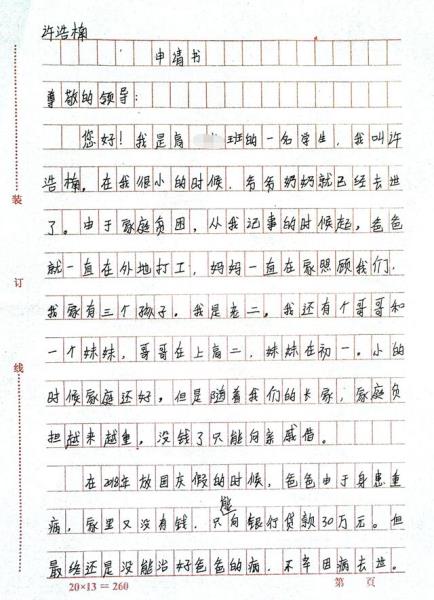 许浩楠
申请书
尊敬的领导：
您好！我是高 班的一名学生，我叫许
浩楠。在我很小的时候，爷爷奶奶就已经去世
了。由于家庭贫困，从我记事的时候起，爸爸
就一直在外地打工，妈妈一直在家照顾我们，
我家有三个孩子。我是老二。我还有个哥哥和
一个妹妹，哥哥在上高二，妹妹在初一。小的
时候家庭还好。但是随着我们的长家，家庭负
担越来越重，没钱了只能向亲戚借。
在2018年放国庆假的时候，爸爸由于身患重
病，家里又没有钱，只能向银行贷款30万元。但
最终还是没能治好爸爸的病，不幸因病去世。
装
订
线
20×13=260
第 页